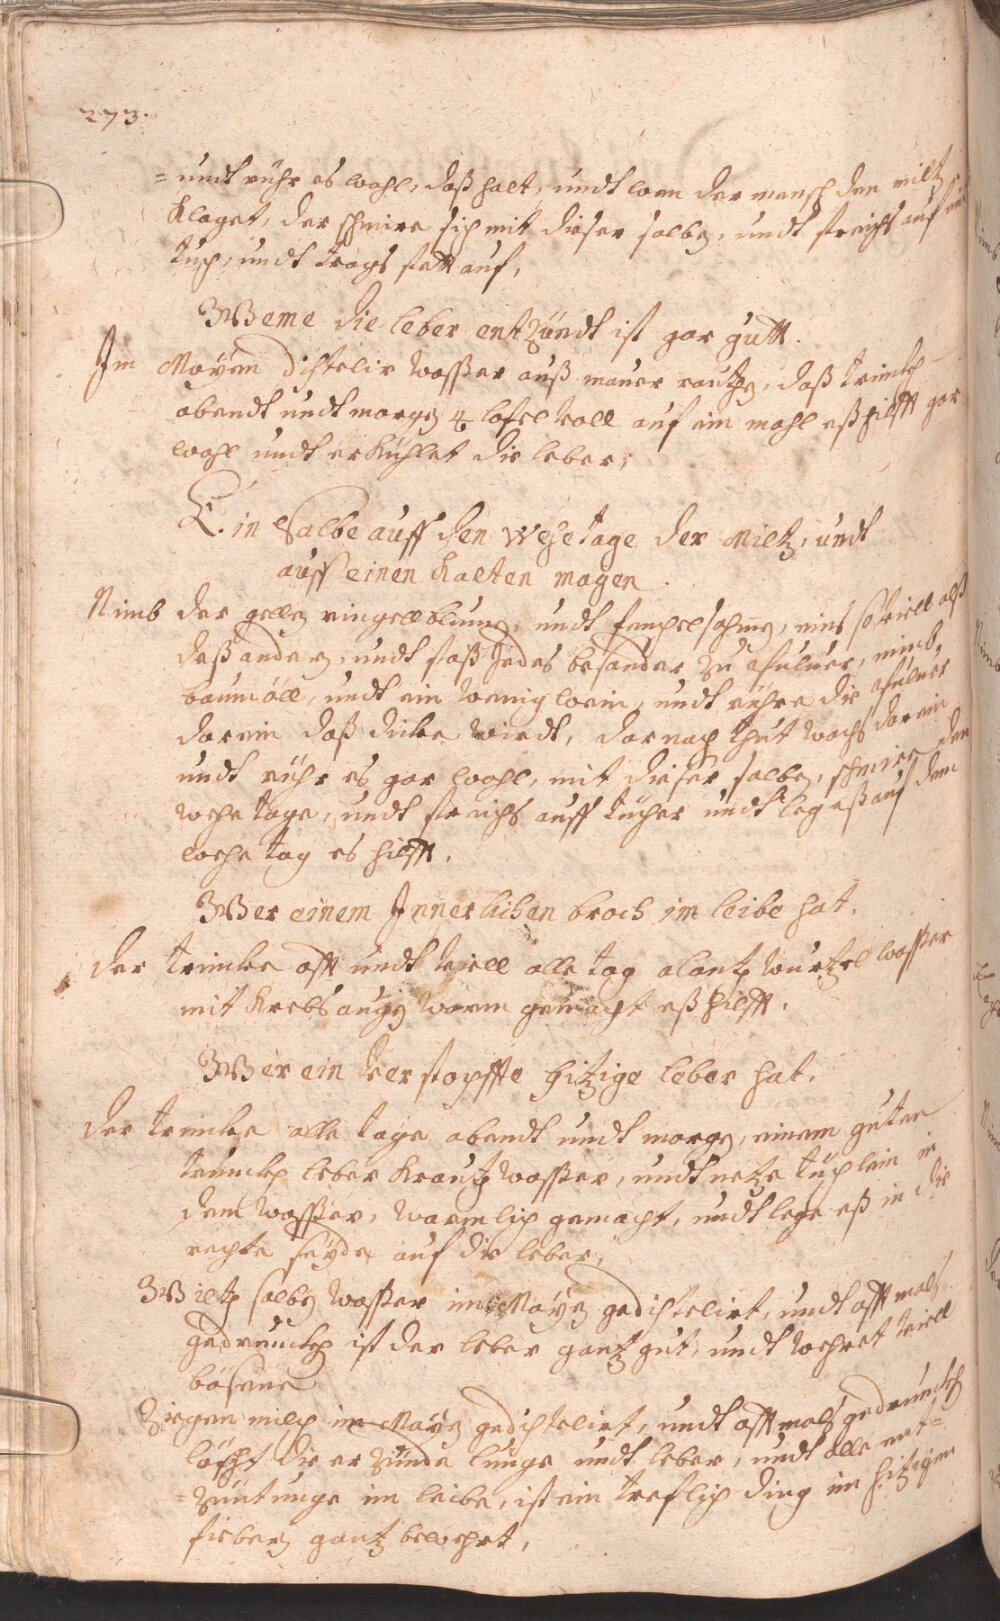 273.
= undt rühr es wohl, daß halt, undt wen der mensch den miltz
Klaget, der schmire sich mit dieser salbe, undt streichs auf ein
tuch, undt trags stett auf,
Weme die leber entzündt ist gar gutt.
Im Mayen distelir wasser auß mauer rauten, daß trinck
abendt undt morgen 4 lofel voll auf ein mahl eß hilfft gar
wohl undt erkühlet die leber,
Ein Salbe auff den wehetage der Miltz, undt
auff einen Kalten magen.
Nimb der gellen ringellblumen, undt fenchelsahmen, eins so viell alß
deß andern, undt stoß jedes besonder zu pfulver, nimb,
baumöll, undt ein wenig wein, undt rühre die pfulver
darein daß dicke wirdt, darnach thut wachs darein
undt rühr es gar wohl, mit dieser salben, schmire den
wehe tage, undt streichs auff tücher undt leg eß auf den
wehe tag es hilfft.
Wer einem Innerlichen broch im leibe hat.
der trincke offt undt viell alle tag alantz wurtzel wasser
mit Krebs augen warm gemacht eß hilfft.
Wer ein verstopffte hitzige leber hat.
der trincke alle tage abendt undt morgen, einem guten
trunck leber Krautz wasser, undt netze tüchlein in
dem wasser, warmlich gemacht, undt lege eß in die
rechte seyde auf die leber,
Wiltz salben wasser im Mayen gedistelirt, undt offt mals
gedrunckh ist der leber gantz gut, undt wehret viell
bösene
Ziegen milch im Mayen gedistelirt, undt offtmals gedrunckh
löscht die er zünde lunge undt leber, undt alle ent=
=züntunge im leibe, ist ein treflich ding im hitzigen
fieber gantz bewehrt,